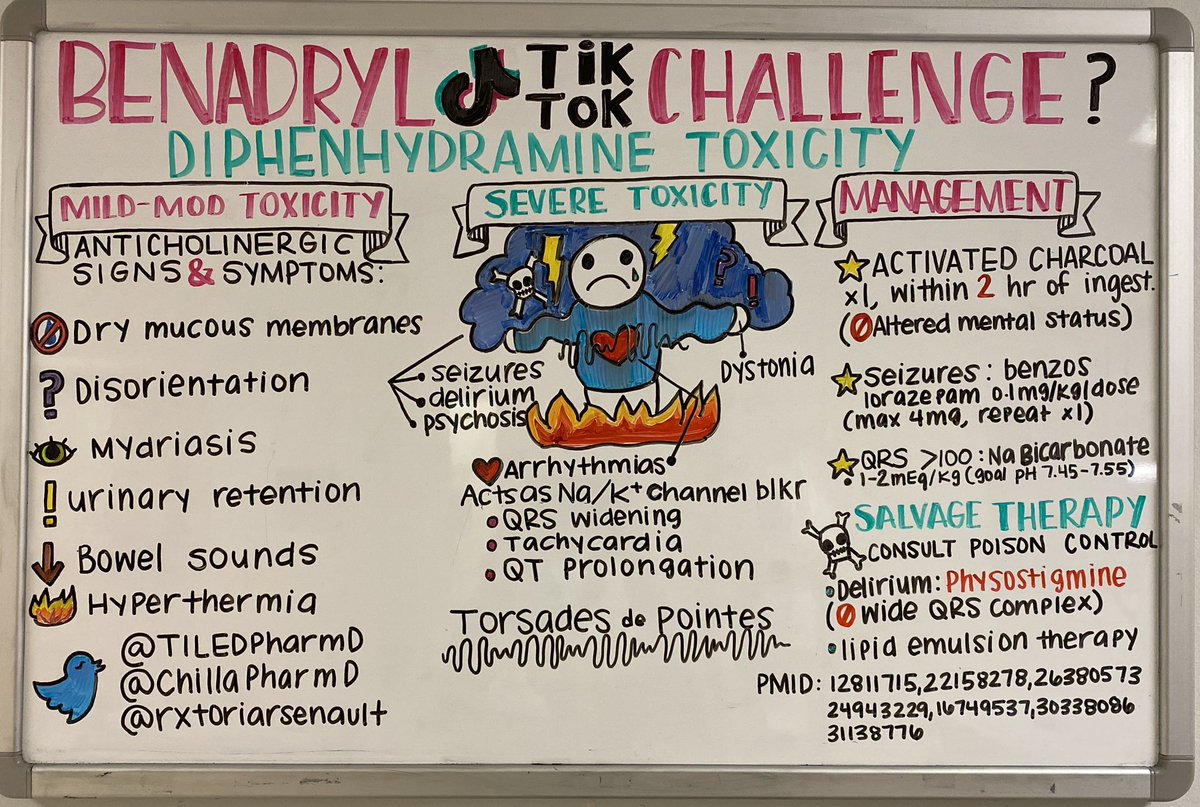 BENADRYL TiK TOK CHALLENGE?
DIPHENHYDRAMINE TOXICITY
MILD-MOD TOXICITY
ANTICHOLINERGIC
SIGNS & SYMPTOMS:
Dry mucous membranes
? Disorientation
Mydriasis
! urinary retention
↓ Bowel sounds
Hyperthermia
@TILEDPharmD
@ChillaPharmD
@rxtoriarsenault
SEVERE TOXICITY
? !
• seizures
• delirium
• psychosis
Dystonia
Arrhythmias
Acts as Na/K+ channel blkr
• QRS widening
• Tachycardia
• QT Prolongation
Torsades de Pointes
MANAGEMENT
ACTIVATED CHARCOAL
x1, within 2 hr of ingest.
(Altered mental status)
Seizures: benzos
lorazepam 0.1mg/kg/dose
(max 4mg, repeat x1)
QRS >100: Na Bicarbonate
1-2mEq/kg (goal pH 7.45-7.55)
SALVAGE THERAPY
CONSULT POISON CONTROL
• Delirium: Physostigmine
(Wide QRS complex)
• lipid emulsion therapy
PMID: 12811715, 22158278, 26380573
24943229, 16749537, 30338086
31138776